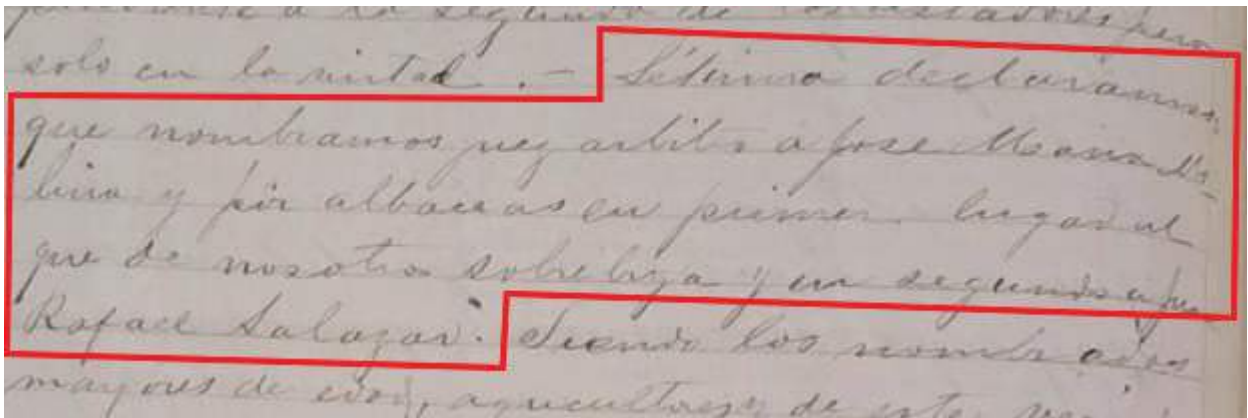 a la segunda de los testadores pero
solo en la mitad. - Sétimo declaramos
que nombramos juez arbitro a Jose Maria Mo-
lina y por albaceas en primer lugar al
que de nosotros sobreviva y en segundo a Juan
Rafael Salazar. Siendo los nombrados
mayores de edad, agricultores de este